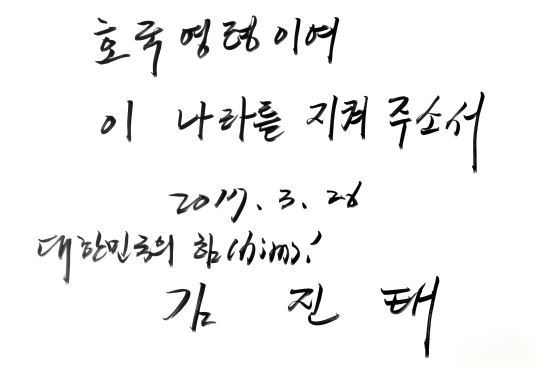 호국영령이여
이 나라를 지켜 주소서
2017. 3. 26
대한민국의 힘(him)!
김 진 태